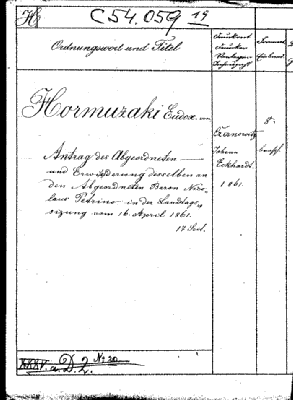 H
C 54.059 19
Ordnungswort und Titel
Druckort
Drucker
Format
Einband
Hormuzaki Eudox. von
Antrag des Abgeordneten
und Erwiderung desselben an
den Abgeordneten Baron Nico-
laus Petrino in der Landtags-
sizung vom 16. April 1861.
17 Seit.
Czernowitz
Johann
Eckhardt
1861.
8.
brosch.
XXXV. a. D. 2. No 20